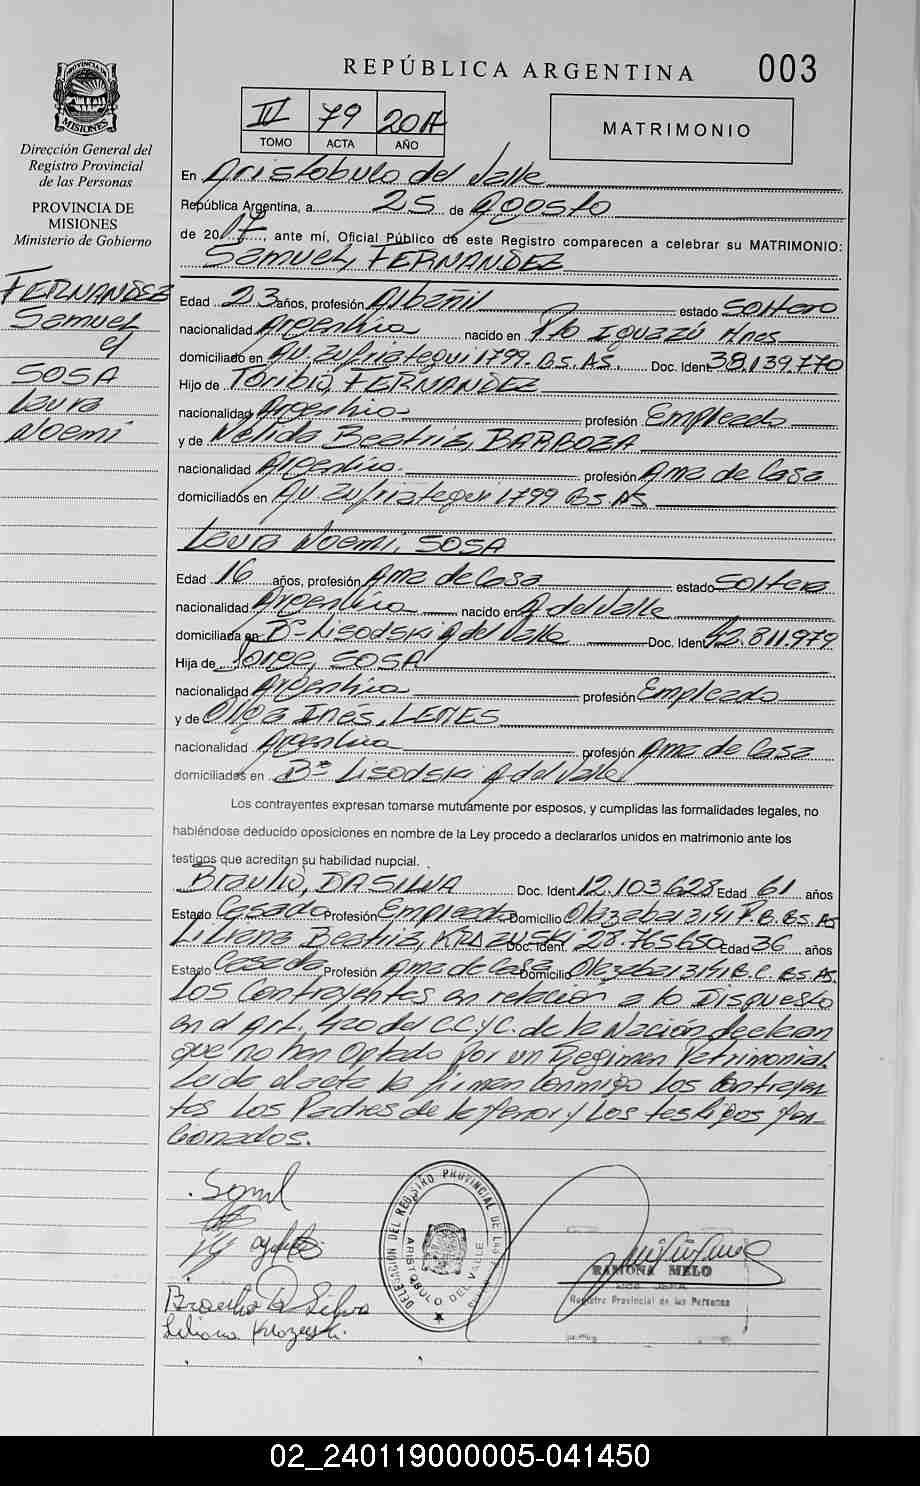 REPÚBLICA ARGENTINA
003
PROVINCIA DE MISIONES
Dirección General del
Registro Provincial
de las Personas
PROVINCIA DE
MISIONES
Ministerio de Gobierno
III 79 2017
TOMO ACTA AÑO
MATRIMONIO
FERNANDEZ
Samuel
SOSA
Laura
Noemi
En Aristobulo del Valle
República Argentina, a 25 de Agosto
de 2017, ante mí, Oficial Público de este Registro comparecen a celebrar su MATRIMONIO:
Samuel, FERNANDEZ
Edad 23 años, profesión Albañil estado Soltero
nacionalidad Argentina nacido en Pto Iguazú Mnes
domiciliado en Av. Zufriategui 1799. Bs. As. Doc. Ident 38.139.770
Hijo de Toribio, FERNANDEZ
nacionalidad Argentina profesión Empleado
y de Nelida Beatriz, BARBOZA
nacionalidad Argentina profesión Ama de Casa
domiciliados en Av Zufriategui 1799 Bs. As
Laura Noemi, SOSA
Edad 16 años, profesión Ama de Casa estado Soltera
nacionalidad Argentina nacido en A del Valle
domiciliada en B° Lisodski A del Valle Doc. Ident 42.811979
Hija de Jorge, SOSA
nacionalidad Argentina profesión Empleado
y de Olga Inés, LEMES
nacionalidad Argentina profesión Ama de Casa
domiciliados en B° Lisodski A del Valle
Los contrayentes expresan tomarse mutuamente por esposos, y cumplidas las formalidades legales, no
habiéndose deducido oposiciones en nombre de la Ley procedo a declararlos unidos en matrimonio ante los
testigos que acreditan su habilidad nupcial.
Braulio, DA SILVA Doc. Ident 12.103.628 Edad 61 años
Estado Casado Profesión Empleado Domicilio Olazabal 3191 Bs. As
Liliana Beatriz, Doc. Ident. 28.765650 Edad 36 años
Estado Casada Profesión Ama de Casa Domicilio Olazabal 3191 Bs. As.
Los Contrayentes en relación a lo Dispuesto
en el Art. 420 del C.C. y C. de la Nación declaran
que no han Optado por un Regimen Patrimonial.
Leida el acta la firman Conmigo los Contrayen-
tes Los Padres de la Menor y Los testigos Men-
cionados.
DELEGACION DEL REGISTRO PROVINCIAL DE LAS
ARISTOBULO DEL VALLE
RAMONA MELO
Registro Provincial de las Personas
Braulio Da Silva
Liliana
02_240119000005-041450